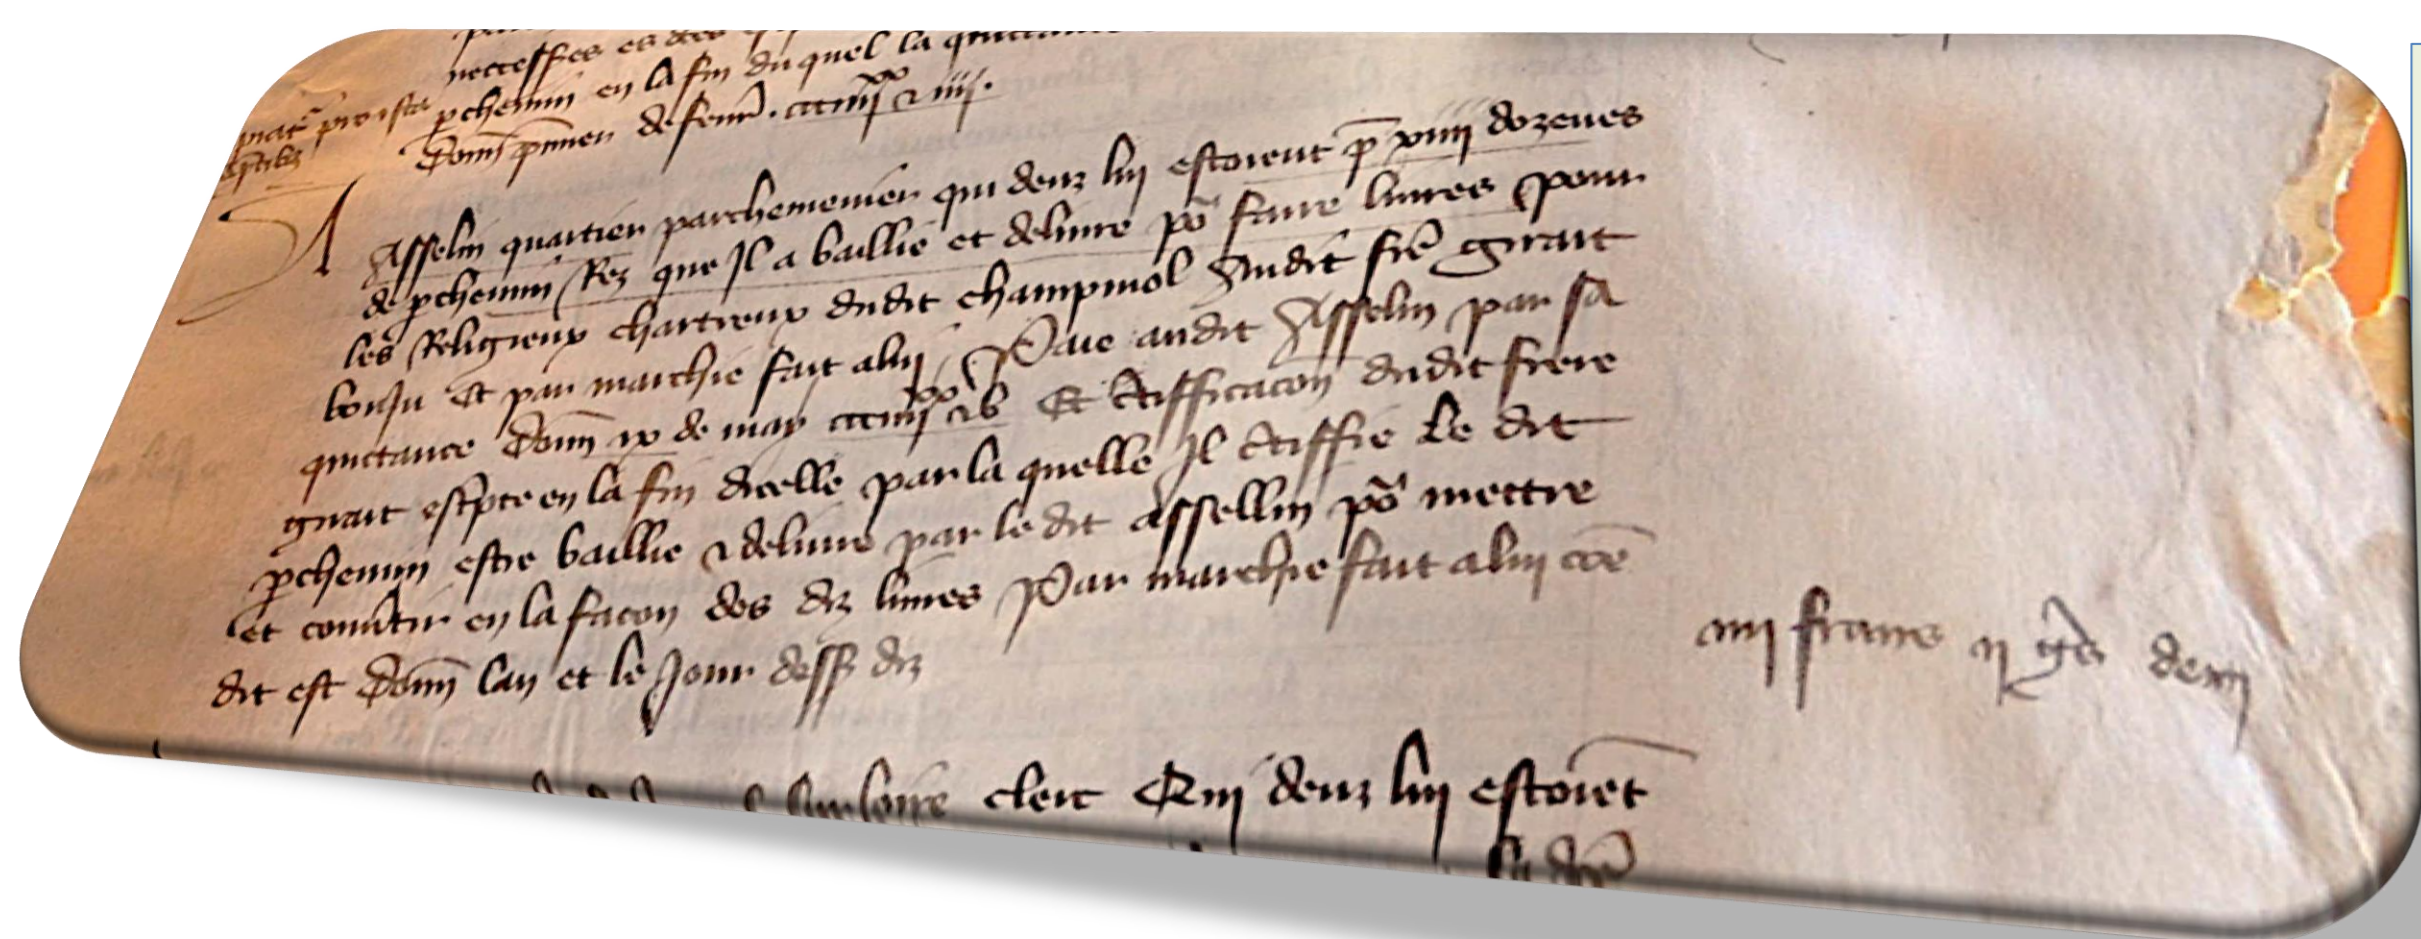 necessaires es dites
pchemin en la fin du quel la quittance
Donn pmier de feur. ccciiii xx et iiii.
A
Asselin quartier parchemenier qui deuz lui estoient p xiiii dozenes
de pchemin Rez que Il a baillie et deliure po faire liures pour
les Religieux chartreux dudit champmol Audit fre girart
bonju Et par marchie fait alui Paie audit Asselin par sa
quictance Donn ix de may ccciiii xx et v Et Ctifficacon dudit frere
girart escpte en la fin dicelle par la quelle Il Ctiffie Le dit
pchemin estre baillie et deliure par le dit Assellin po mettre
et conutir en la facon des diz liures Par marchie fait alui coe
dit est Donn lan et le Jour dess diz
iiii frans ii gs demi
clerc Qui deuz lui estoiet